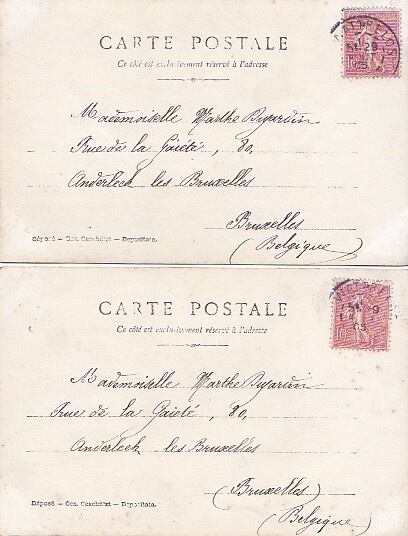 CARTE POSTALE
Ce côté est exclusivement réservé à l'adresse
Mademoiselle Marthe Dyardin
Rue de la Gaieté, 80,
Anderleck les Bruxelles
Bruxelles
(Belgique)
Déposé – Ges. Geschützt – Depositata.
CARTE POSTALE
Ce côté est exclusivement réservé à l'adresse
Mademoiselle Marthe Dyardin
Rue de la Gaieté, 80,
Anderleck les Bruxelles
(Bruxelles)
(Belgique)
Déposé – Ges. Geschützt – Depositata.